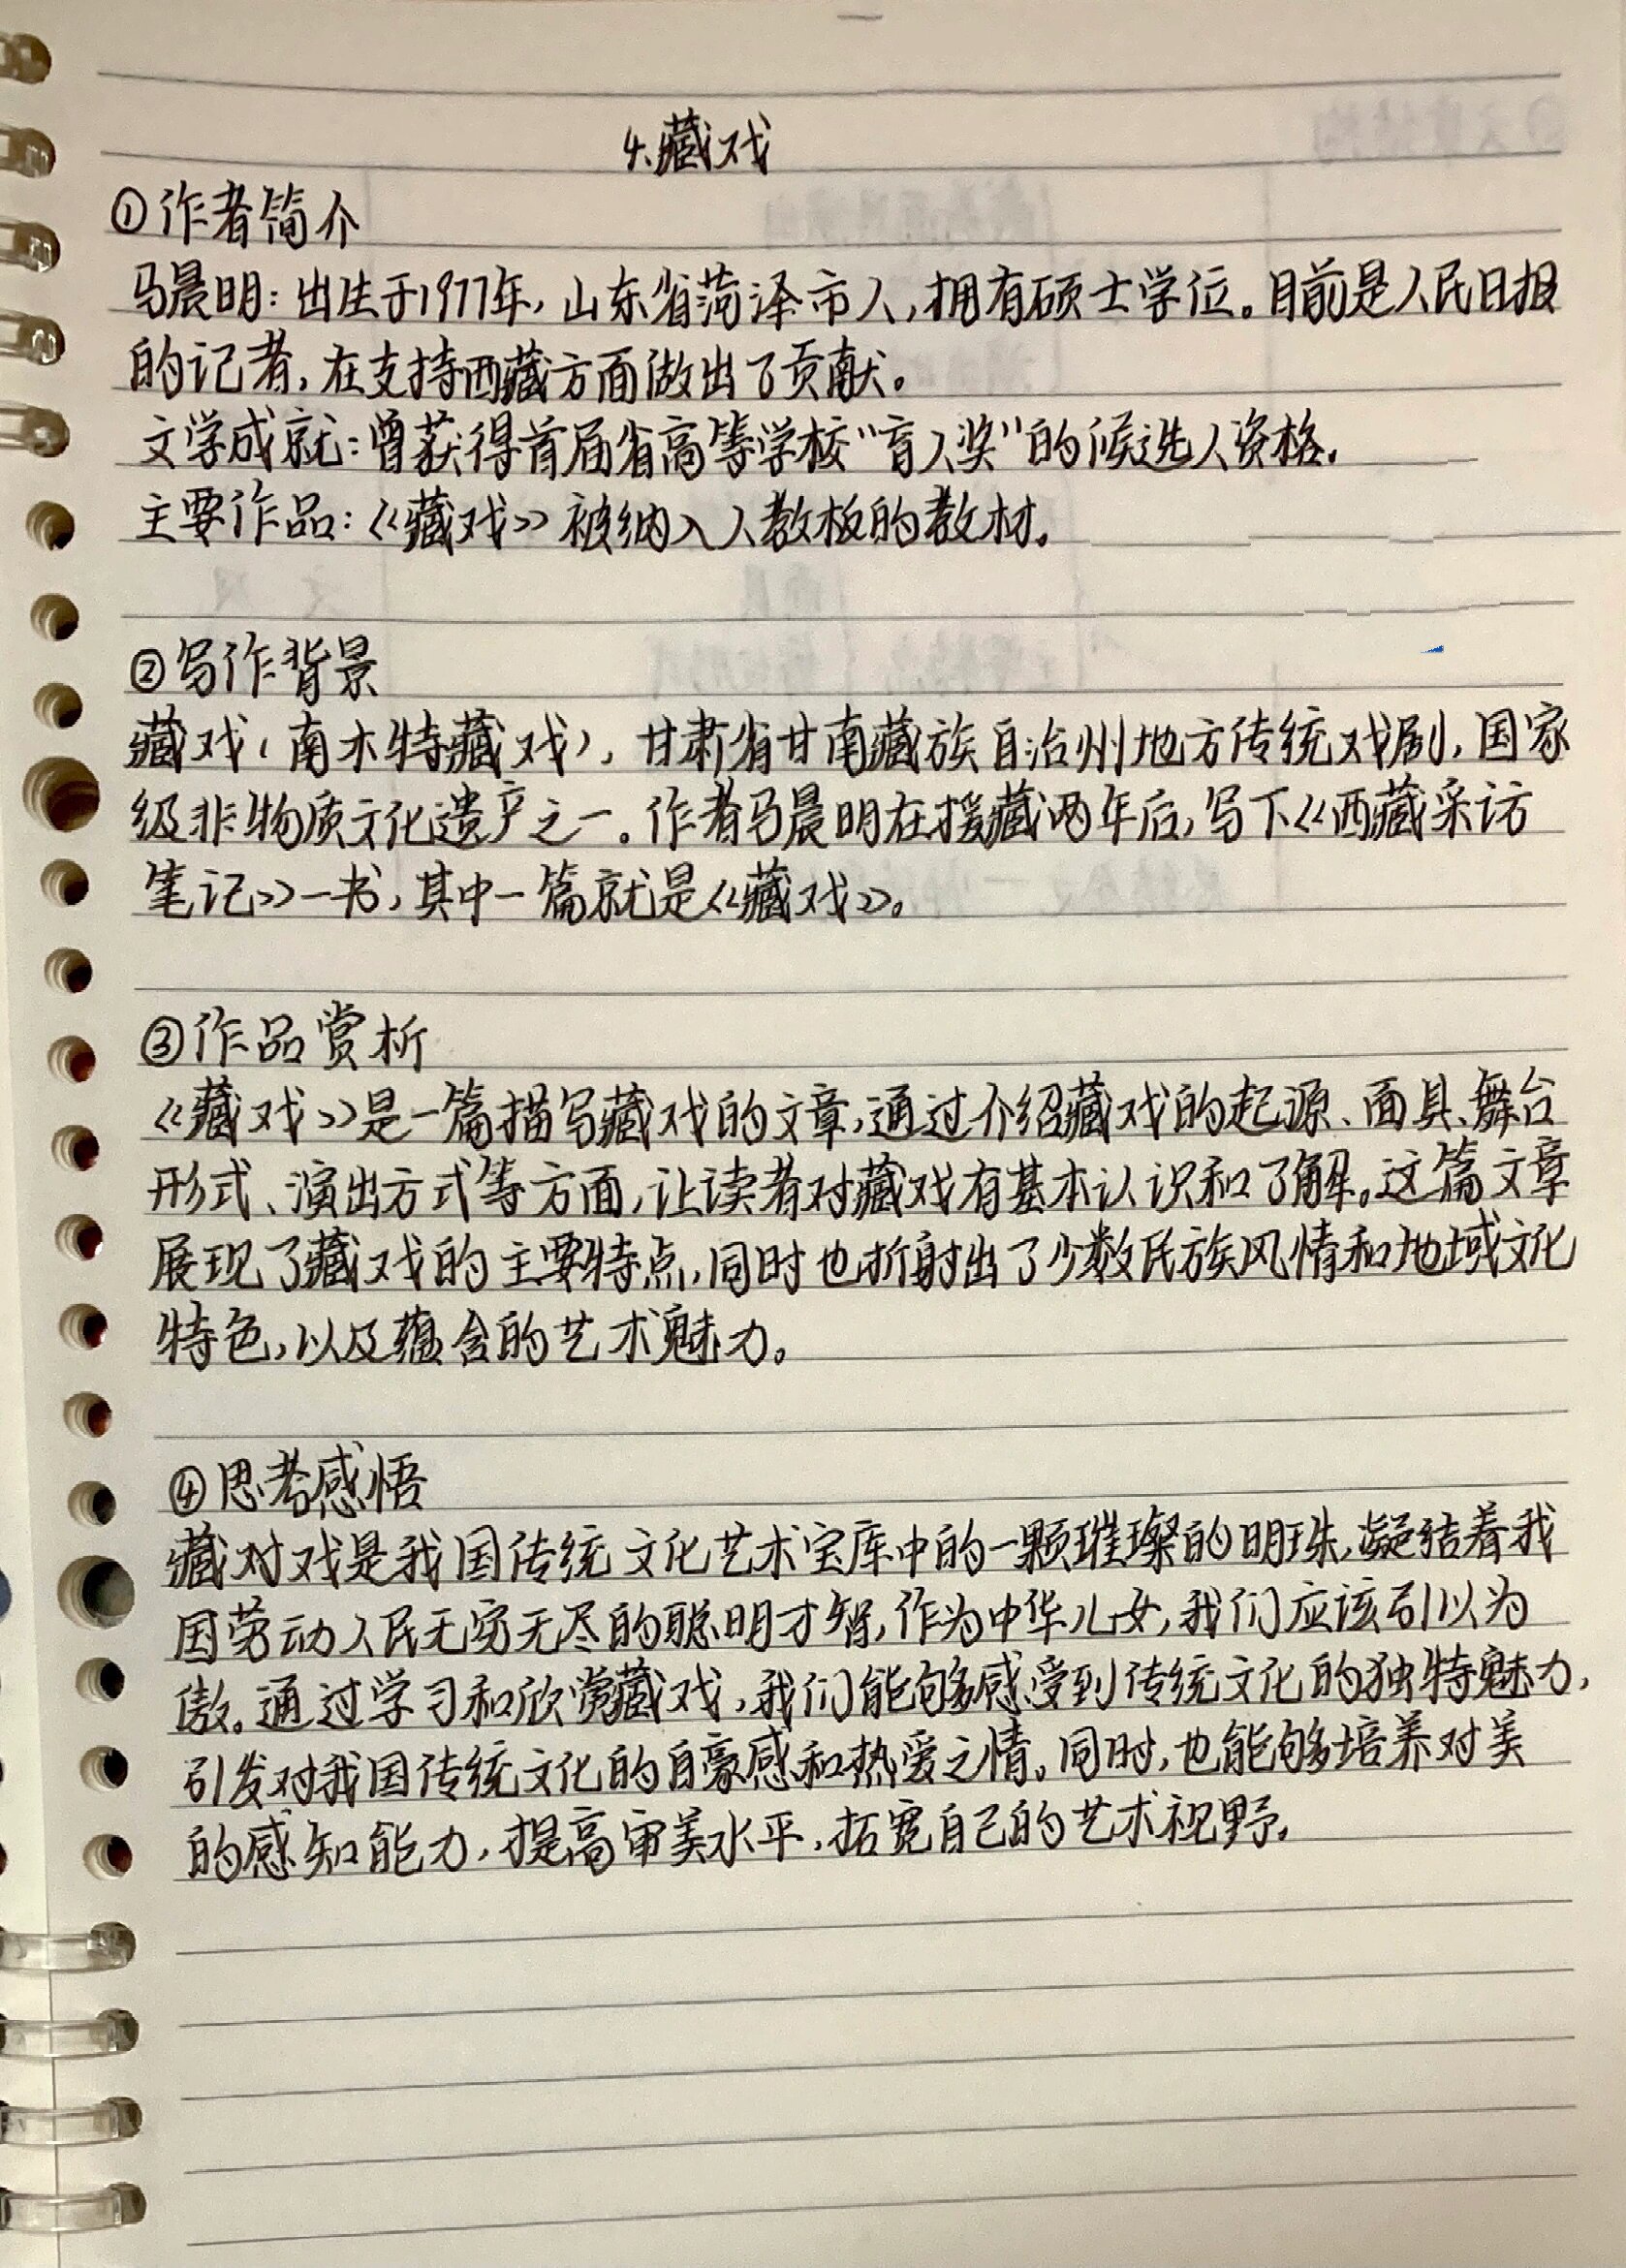 4.藏戏
①作者简介
马晨明：出生于1977年，山东省菏泽市人，拥有硕士学位。目前是人民日报
的记者，在支持西藏方面做出了贡献。
文学成就：曾获得首届省高等学校“育人奖”的候选人资格。
主要作品：《藏戏》被纳入人教板的教材。
②写作背景
藏戏（南木特藏戏），甘肃省甘南藏族自治州地方传统戏剧，国家
级非物质文化遗产之一。作者马晨明在援藏两年后，写下《西藏采访
笔记》一书，其中一篇就是《藏戏》。
③作品赏析
《藏戏》是一篇描写藏戏的文章，通过介绍藏戏的起源、面具、舞台
形式、演出方式等方面，让读者对藏戏有基本认识和了解。这篇文章
展现了藏戏的主要特点，同时也折射出了少数民族风情和地域文化
特色，以及蕴含的艺术魅力。
④思考感悟
藏对戏是我国传统文化艺术宝库中的一颗璀璨的明珠，凝结着我
国劳动人民无穷无尽的聪明才智，作为中华儿女，我们应该引以为
傲。通过学习和欣赏藏戏，我们能够感受到传统文化的独特魅力，
引发对我国传统文化的自豪感和热爱之情。同时，也能够培养对美
的感知能力，提高审美水平，拓宽自己的艺术视野。